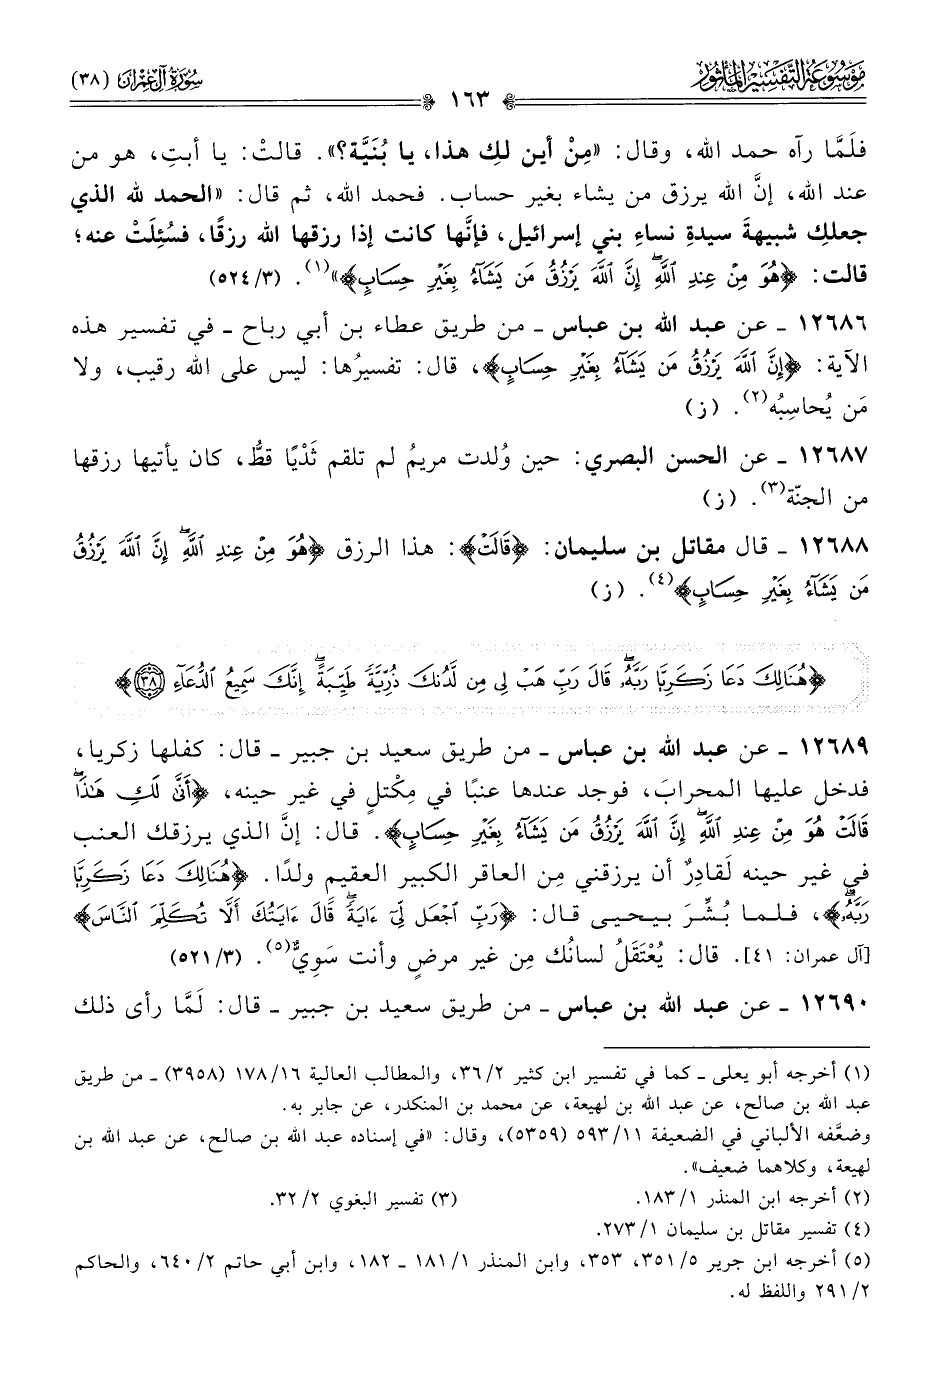 مَوْسُوعَة التَّفْسِيْرُ المَأْثُور
سُورَةُ آلِ عِمْرَان (٣٨)
١٦٣
فلَمَّا رآه حمد الله، وقال: «مِنْ أين لكِ هذا، يا بُنَيَّة؟». قالتْ: يا أبتِ، هو من
عند الله، إنَّ الله يرزق من يشاء بغير حساب. فحمد الله، ثم قال: «الحمد لله الذي
جعلكِ شبيهةَ سيدةِ نساءِ بني إسرائيل، فإنَّها كانت إذا رزقها الله رزقًا، فسُئِلَتْ عنه؛
قالت: ﴿هُوَ مِنْ عِندِ ٱللَّهِۖ إِنَّ ٱللَّهَ يَرْزُقُ مَن يَشَآءُ بِغَيْرِ حِسَابٍ﴾»(١). (٥٢٤/٣)
١٢٦٨٦ ـ عن عبد الله بن عباس ـ من طريق عطاء بن أبي رباح ـ في تفسير هذه
الآية: ﴿إِنَّ ٱللَّهَ يَرْزُقُ مَن يَشَآءُ بِغَيْرِ حِسَابٍ﴾، قال: تفسيرُها: ليس على الله رقيب، ولا
مَن يُحاسِبُه(٢). (ز)
١٢٦٨٧ ـ عن الحسن البصري: حين وُلدت مريمُ لم تلقم ثَدْيًا قطُّ، كان يأتيها رزقها
من الجنّة(٣). (ز)
١٢٦٨٨ ـ قال مقاتل بن سليمان: ﴿قَالَتْ﴾: هذا الرزق ﴿هُوَ مِنْ عِندِ ٱللَّهِۖ إِنَّ ٱللَّهَ يَرْزُقُ
مَن يَشَآءُ بِغَيْرِ حِسَابٍ﴾(٤). (ز)
﴿هُنَالِكَ دَعَا زَكَرِيَّا رَبَّهُۥۖ قَالَ رَبِّ هَبْ لِى مِن لَّدُنكَ ذُرِّيَّةً طَيِّبَةًۖ إِنَّكَ سَمِيعُ الدُّعَآءِ ٣٨﴾
١٢٦٨٩ ـ عن عبد الله بن عباس ـ من طريق سعيد بن جبير ـ قال: كفلها زكريا،
فدخل عليها المحرابَ، فوجد عندها عنبًا في مِكْتلٍ في غير حينه، ﴿أَنَّى لَكِ هَٰذَاۖ
قَالَتْ هُوَ مِنْ عِندِ ٱللَّهِۖ إِنَّ ٱللَّهَ يَرْزُقُ مَن يَشَآءُ بِغَيْرِ حِسَابٍ﴾. قال: إنَّ الذي يرزقك العنب
في غير حينه لَقادِرٌ أن يرزقني مِن العاقر الكبير العقيم ولدًا. ﴿هُنَالِكَ دَعَا زَكَرِيَّا
رَبَّهُۥۖ﴾، فلما بُشِّرَ بيحيى قال: ﴿رَبِّ اجْعَل لِّىٓ ءَايَةًۖ قَالَ ءَايَتُكَ أَلَّا تُكَلِّمَ النَّاسَ﴾
[آل عمران: ٤١]. قال: يُعْتَقَلُ لسانُك مِن غير مرضٍ وأنت سَوِيٌّ(٥). (٥٢١/٣)
١٢٦٩٠ ـ عن عبد الله بن عباس ـ من طريق سعيد بن جبير ـ قال: لَمَّا رأى ذلك
(١) أخرجه أبو يعلى ـ كما في تفسير ابن كثير ٣٦/٢، والمطالب العالية ١٧٨/١٦ (٣٩٥٨) ـ من طريق
عبد الله بن صالح، عن عبد الله بن لهيعة، عن محمد بن المنكدر، عن جابر به.
وضعَّفه الألباني في الضعيفة ٥٩٣/١١ (٥٣٥٩)، وقال: «في إسناده عبد الله بن صالح، عن عبد الله بن
لهيعة، وكلاهما ضعيف».
(٢) أخرجه ابن المنذر ١٨٣/١. (٣) تفسير البغوي ٣٢/٢.
(٤) تفسير مقاتل بن سليمان ٢٧٣/١.
(٥) أخرجه ابن جرير ٣٥١/٥، ٣٥٣، وابن المنذر ١٨١/١ ـ ١٨٢، وابن أبي حاتم ٦٤٠/٢، والحاكم
٢٩١/٢ واللفظ له.